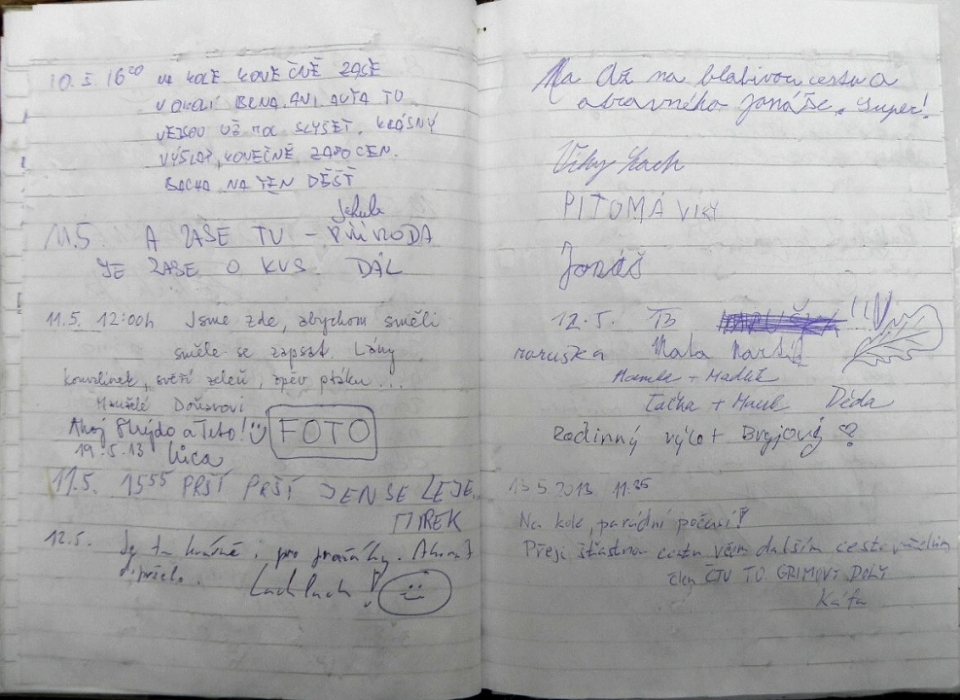 10. 5 16 20 NA KOLE KONEČNĚ ZASE
V OKOLÍ BRNA. ANI AUTA TU
NEJSOU UŽ MOC SLYŠET. KRÁSNÝ
VÝŠLAP, KONEČNĚ ZAPOCEN.
BACHA NA TEN DÉŠŤ
Jakub
11.5 A ZASE TU – PŘÍRODA
JE ZASE O KUS DÁL
11.5. 12:00h Jsme zde, abychom směli
směle se zapsat. Lány
konvalinek, svěží zeleň, zpěv ptáků...
Manželé
Ahoj Strejdo a Teto!
FOTO
19.5.13 Lůca
11.5. 15 55 PRŠÍ PRŠÍ JEN SE LEJE
MIREK
12.5. Je tu krásně i pro pražáky.
Lachtach!
Na až na blátivou cestu a
otravného Jonáše. Super!
PITOMÁ
Jonáš
12.5. 13
maruška Máta
Mamka +
Taťka + Děda
Rodinný výlet ♡
13 5 2013 11:35
Na kole, parádní počasí!
Přeji šťastnou cestu všem dalším cestovatelům
člen ČTU TO GRIMOVY DOLY
Káťa